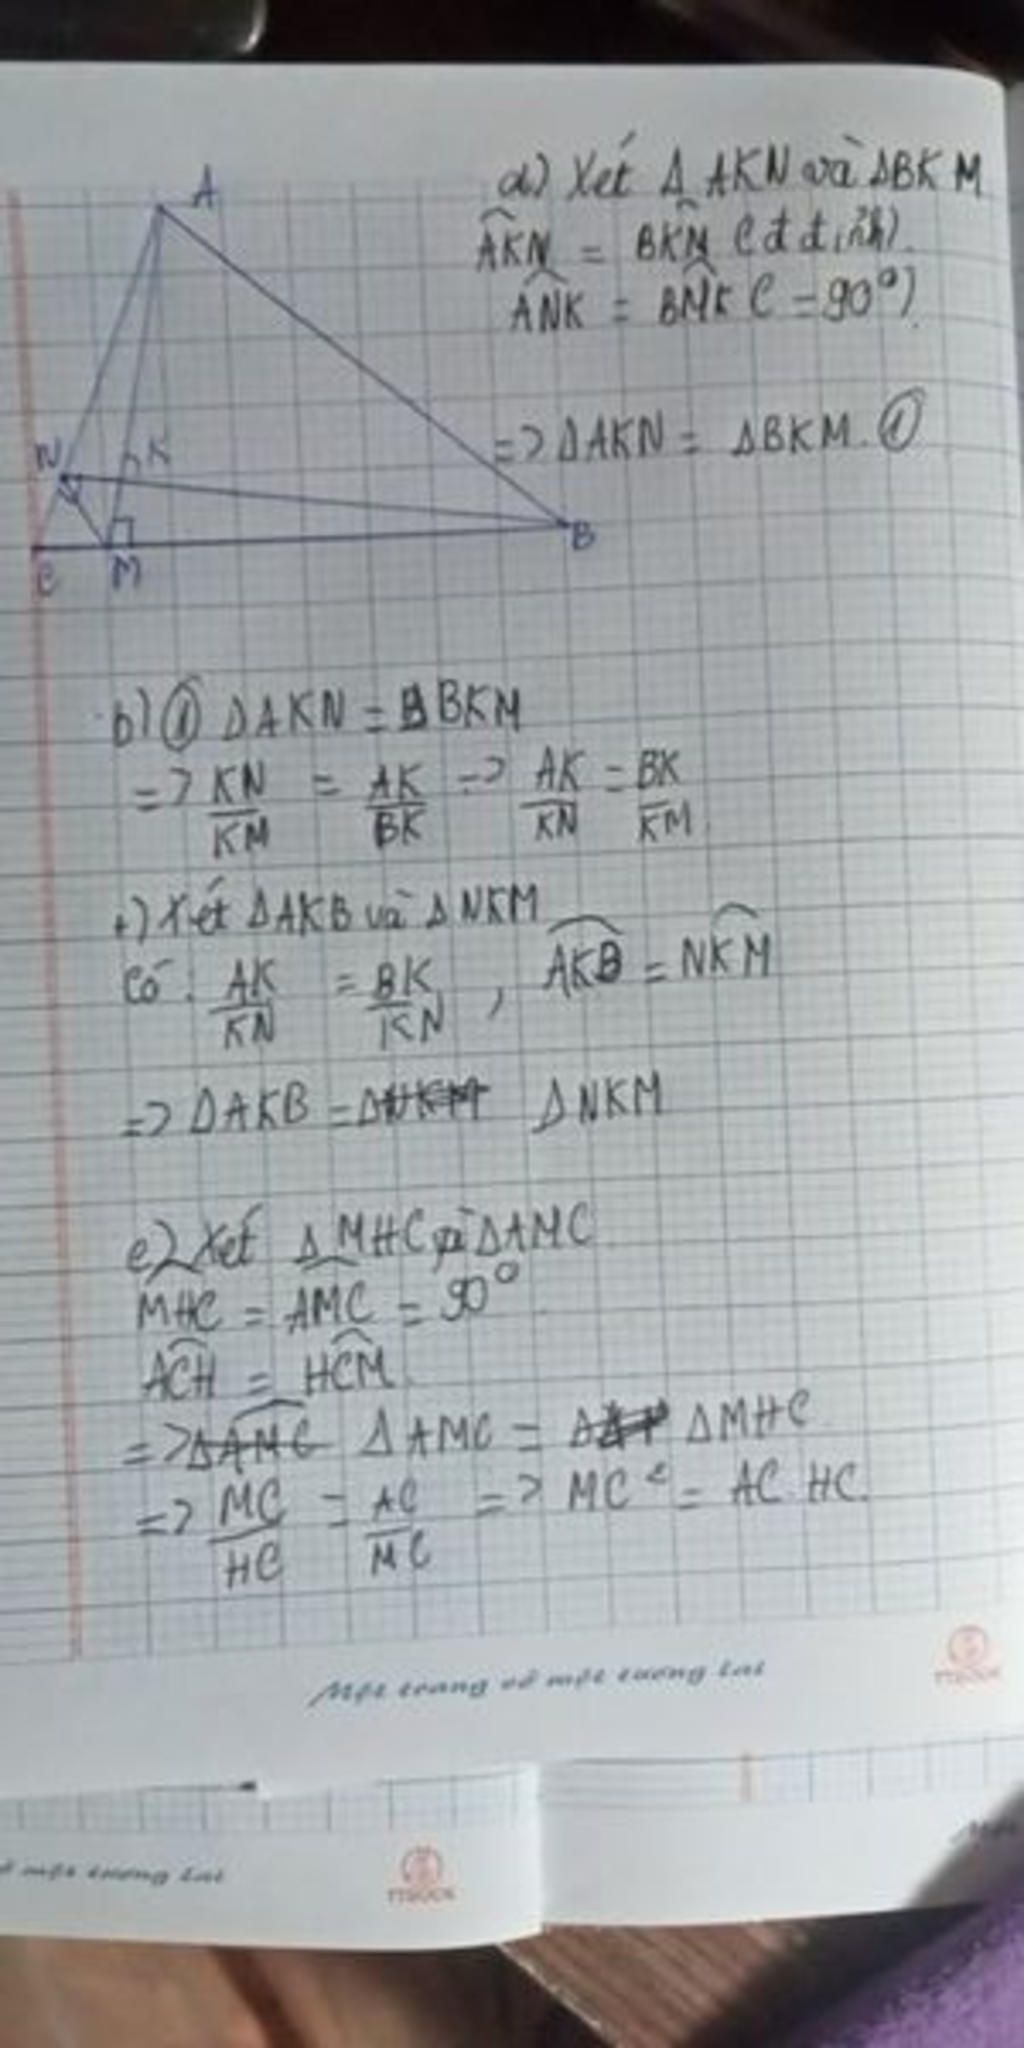 A
N
K
C
M
B
a) Xét Δ AKN và ΔBKM
AKN = BKM (đ đỉnh).
ANK = BMK (=90°)
=> ΔAKN = ΔBKM. ①
b) ① ΔAKN = BKM
=> KN/KM = AK/BK => AK/KN = BK/KM
+) Xét ΔAKB và ΔNKM
Có: AK/KN = BK/KN , AKB = NKM
=> ΔAKB = ΔNKM
c) Xét ΔMHC và ΔAMC
MHC = AMC = 90°
ACH = HCM
=> ΔAMC = ΔMHC
=> MC/HC = AC/MC => MC² = AC.HC.
Một trang vở một tương lai
TTBOOK
một tương lai
TTBOOK